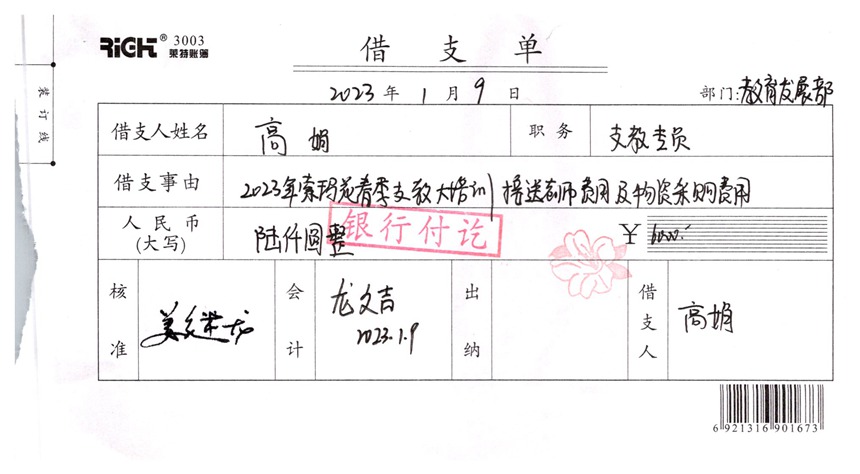 RICH® 3003
莱特账簿
借支单
2023年1月9日 部门:教育发展部
装订线
借支人姓名 高娟 职务 支教专员
借支事由 2023年索玛花春季支教大培训接送老师费用及物资采购费用
人民币(大写) 陆仟圆整 ¥ 6000.-
银行付讫
核准 会计 龙文吉 2023.1.9 出纳 借支人 高娟
6 921316 901673